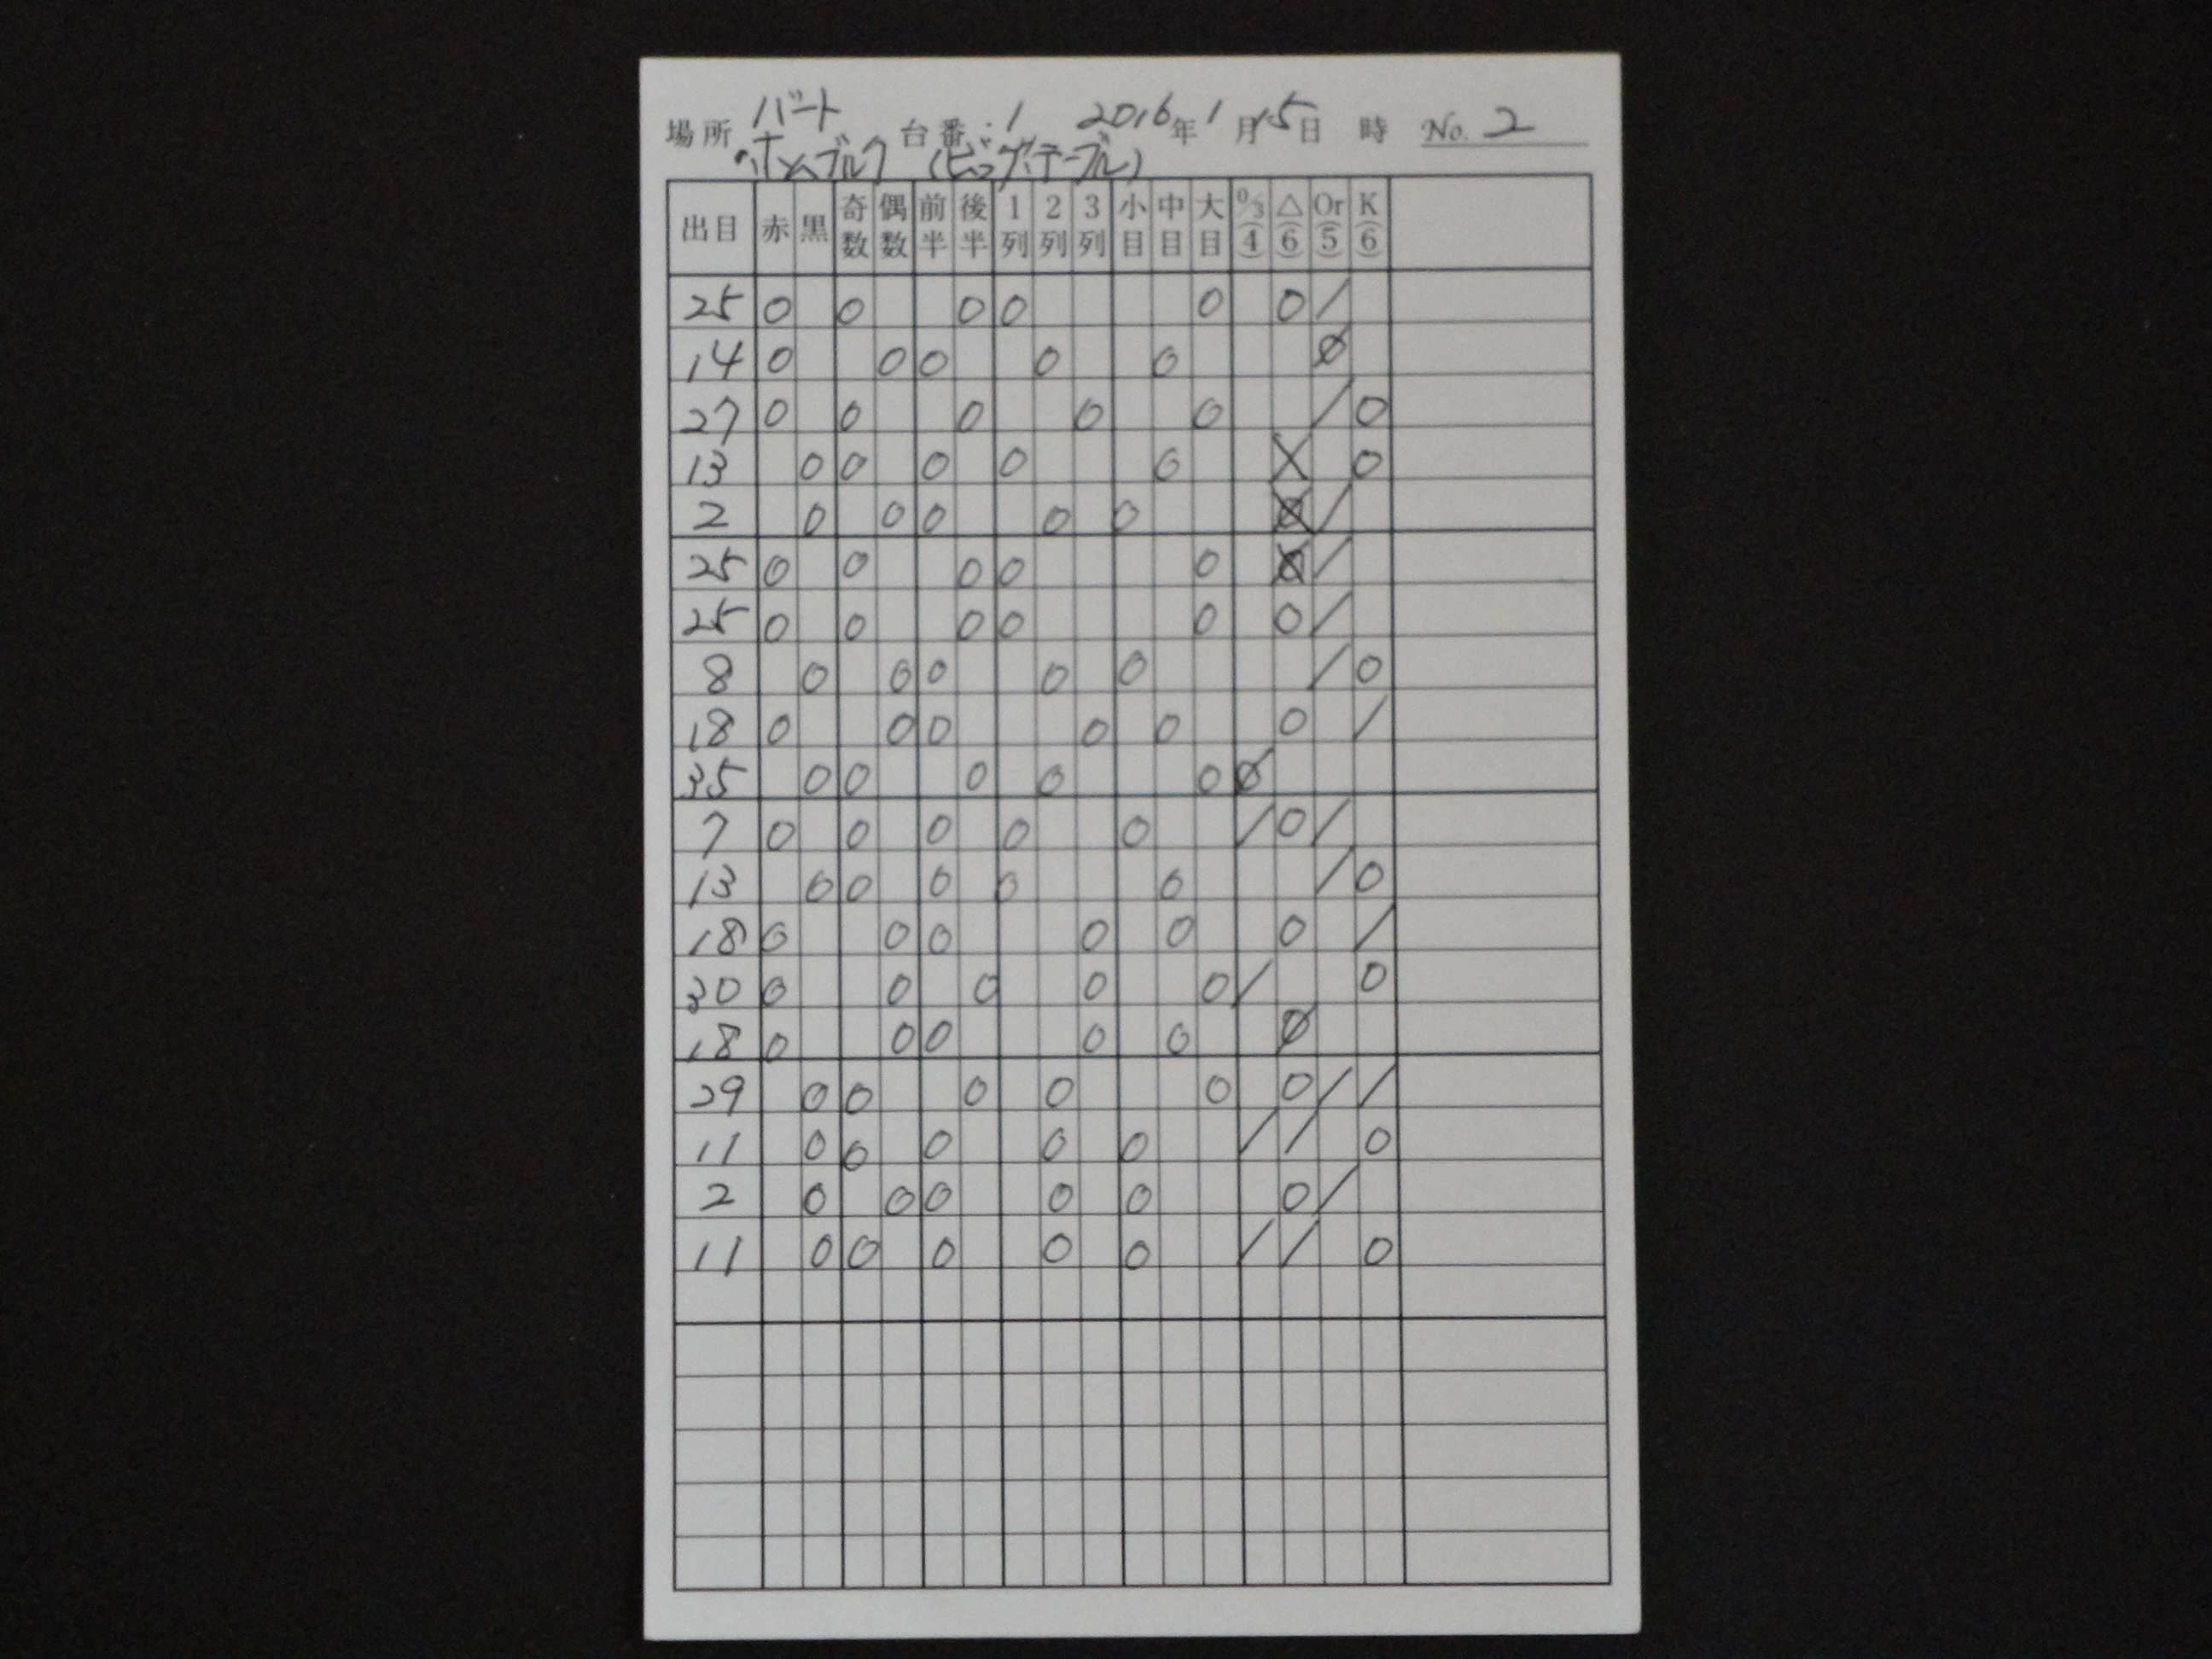 場所 バート 台番:1 2016年1月15日 時 No. 2
・ホムブルク (ビッグ・テーブル)
出目 赤 黒 奇数 偶数 前半 後半 1列 2列 3列 小目 中目 大目 0/3(4) △(6) Or(5) K(6)
25 0 0 0 0 0 0 /
14 0 0 0 0 0 Ø
27 0 0 0 0 0 / 0
13 0 0 0 0 0 X 0
2 0 0 0 0 0 0 /
25 0 0 0 0 0 0 /
25 0 0 0 0 0 0 /
8 0 0 0 0 0 / 0
18 0 0 0 0 0 0 /
35 0 0 0 0 0 Ø
7 0 0 0 0 0 / 0 /
13 0 0 0 0 0 / 0
18 0 0 0 0 0 0 /
30 0 0 0 0 0 / 0
18 0 0 0 0 0 Ø
29 0 0 0 0 0 0 / /
11 0 0 0 0 0 / / 0
2 0 0 0 0 0 0 /
11 0 0 0 0 0 / / 0